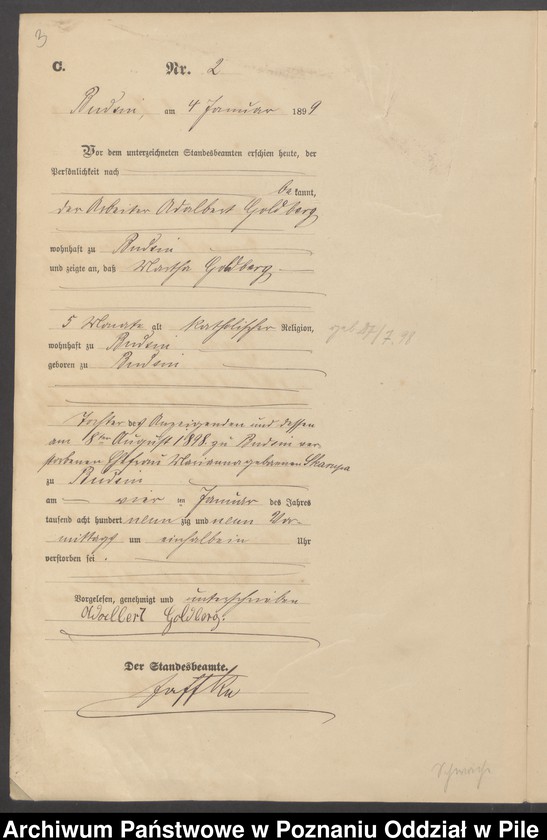 3
C. Nr. 2
am 4 Januar 1899
Vor dem unterzeichneten Standesbeamten erschien heute, der
Persönlichkeit nach
bekannt,
der Arbeiter Adalbert Goldberg
wohnhaft zu
und zeigte an, daß Martha Goldberg
5 Monate alt katholischer Religion,
geb 27/7. 98
wohnhaft zu
geboren zu
Tochter des Anzeigenden und dessen
am 18ten August 1898. zu ver-
storbenen Ehefrau Marianna geborenen Skarupa
zu
am vier ten Januar des Jahres
tausend acht hundert neunzig und neun Vor-
mittags um einhalb ein Uhr
verstorben sei.
Vorgelesen, genehmigt und unterschrieben
Adalbert Goldberg.
Der Standesbeamte.
Jaffke
Schwäche
Archiwum Państwowe w Poznaniu Oddział w Pile